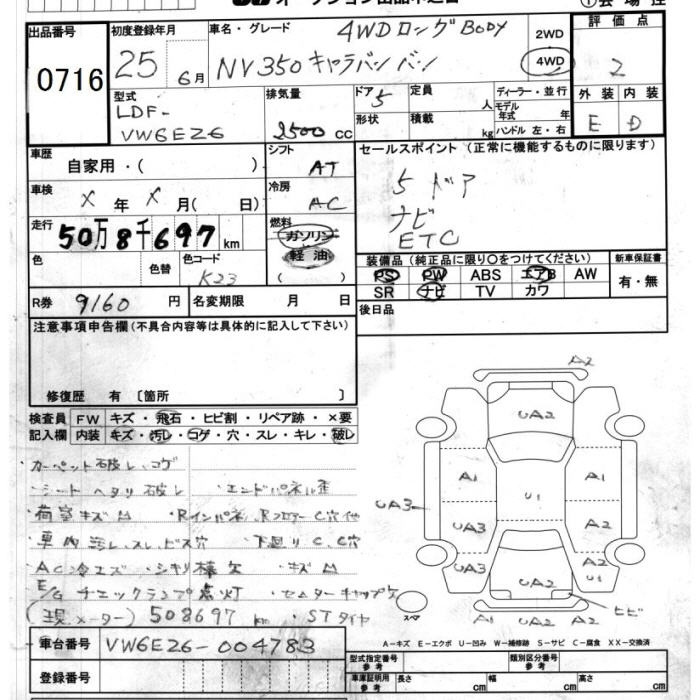 出品番号
0716
初度登録年月
25 6月
車名・グレード
4WDロングBODY
NV350キャラバンバン
2WD
4WD
評価点
2
型式
LDF-
VW6E26
排気量
2500cc
ドア
5
形状
定員
人
積載
kg
ディーラー・並行
モデル
年式 年
ハンドル 左・右
外装
内装
E
D
車歴
自家用・( )
シフト
AT
セールスポイント(正常に機能するものに限ります)
5ドア
ナビ
ETC
車検
X年 X月( 日)
冷房
AC
走行
50万8千697km
燃料
ガソリン
軽油
( )
色
色替
色コード
K23
装備品(純正品に限り○をつけてください)
PS PW ABS エアB AW
SR ナビ TV カワ
新車保証書
有・無
R券
9160円
名変期限 月 日
後日品
注意事項申告欄(不具合内容等は具体的に記入して下さい)
修復歴 有〔箇所 〕
検査員
記入欄
FW キズ・飛石・ヒビ割・リペア跡・×要
内装 キズ・汚レ・コゲ・穴・スレ・キレ・破レ
カーペット破レ、コゲ
・シートヘタリ破レ ・エンドパネル歪
・荷室キズM ・Rインパネ、Rフロアー C穴他
・車内汚レ、スレ、ビス穴 ・下廻りC、C穴
・AC冷エズ ・シキリ棒欠 ・キズM
E/Gチェックランプ点灯 ・センターキャップ欠
(現メーター) 508697km ・STタイヤ
車台番号
VW6E26-004783
登録番号
A2
UA2
A1
A1
U1
UA3
UA3
A2
UA2
A2
U1
ヒビ
A2
スペア
A－キズ E－エクボ U－凹み W－補修跡 S－サビ C－腐食 XX－交換済
型式指定番号
参考
類別区分番号
参考
車庫証明用
参考
長さ cm
幅 cm
高さ cm